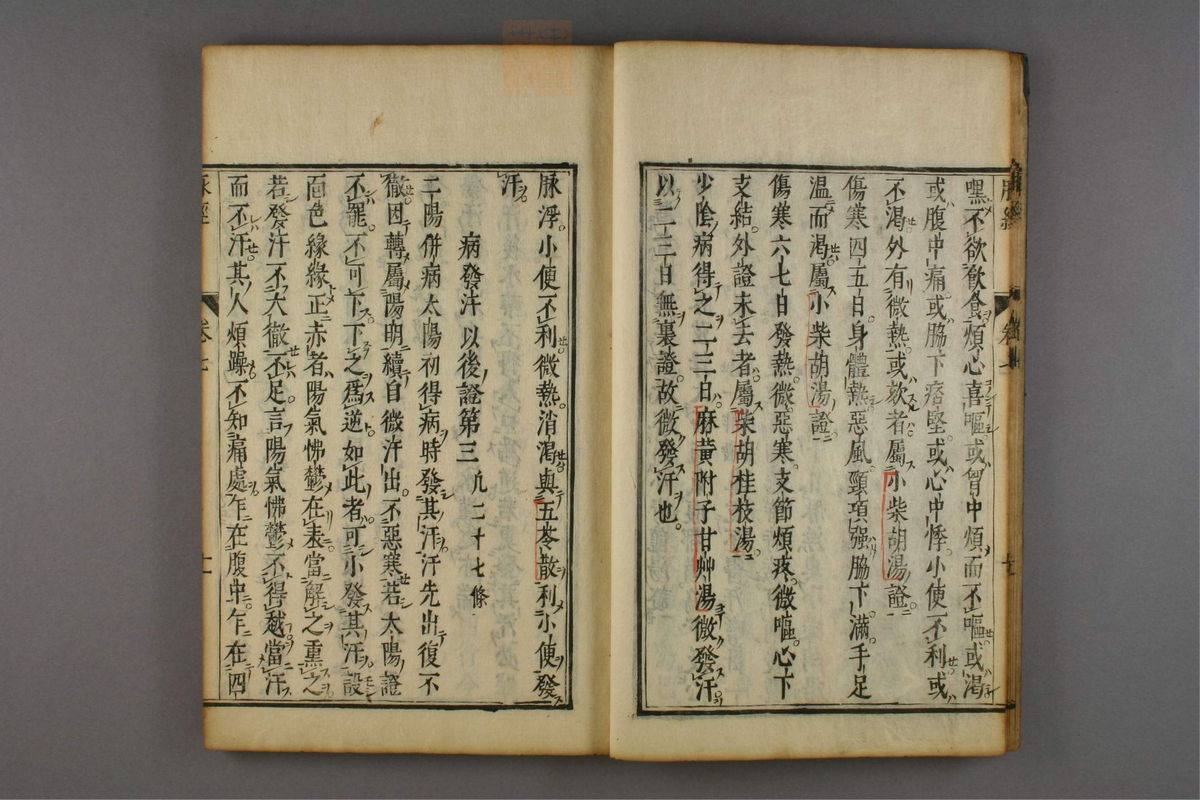 嘿不欲飲食煩心喜嘔或胷中煩而不嘔或渴
或腹中痛或脇下痞堅或心中悸小便不利或
不渴外有微熱或欬者屬小柴胡湯證
傷寒四五日身體熱惡風頸項强脇下滿手足
溫而渴屬小柴胡湯證
傷寒六七日發熱微惡寒支節煩疼微嘔心下
支結外證未去者屬柴胡桂枝湯
少陰病得之二三日麻黃附子甘艸湯微發汗
以二三日無裏證故微發汗也
脉浮小便不利微熱消渴與五苓散利小便發
汗
病發汗以後證第三
二陽併病太陽初得病時發其汗汗先出復不
徹因轉屬陽明續自微汗出不惡寒若太陽證
不罷不可下下之爲逆如此者可小發其汗設
面色緣緣正赤者陽氣怫鬱在表當解之熏之
若發汗不大徹不足言陽氣怫鬱不得越當汗
而不汗其人煩躁不知痛處乍在腹中乍在四
卷七